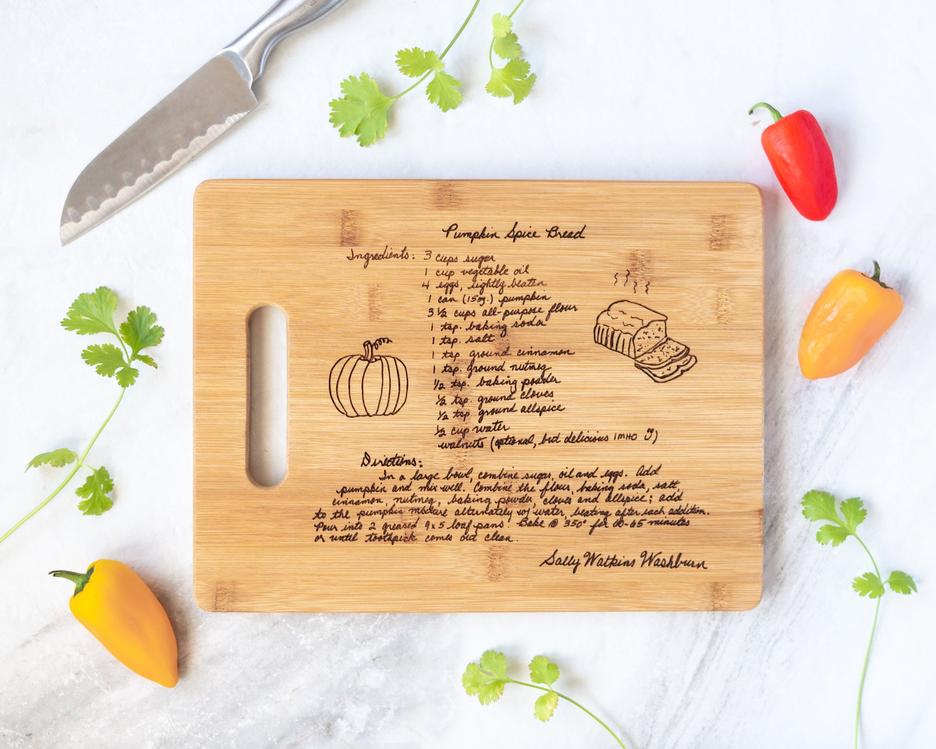 Pumpkin Spice Bread
Ingredients: 3 cups sugar
1 cup vegetable oil
4 eggs, lightly beaten
1 can (15oz.) pumpkin
3 ½ cups all-purpose flour
1 tsp. baking soda
1 tsp. salt
1 tsp ground cinnamon
1 tsp. ground nutmeg
½ tsp. baking powder
½ tsp. ground cloves
½ tsp ground allspice
½ cup water
walnuts (optional, but delicious IMHO)
Directions:
In a large bowl, combine sugar, oil and eggs. Add
pumpkin and mix well. Combine the flour, baking soda, salt
cinnamon, nutmeg, baking powder cloves and allspice; add
to the pumpkin mixture alternately w/ water, beating after each addition.
Pour into 2 greased 9x5 loaf pans. Bake @ 350° for minutes
or until toothpick comes out clean.
Sally Watkins Washburn